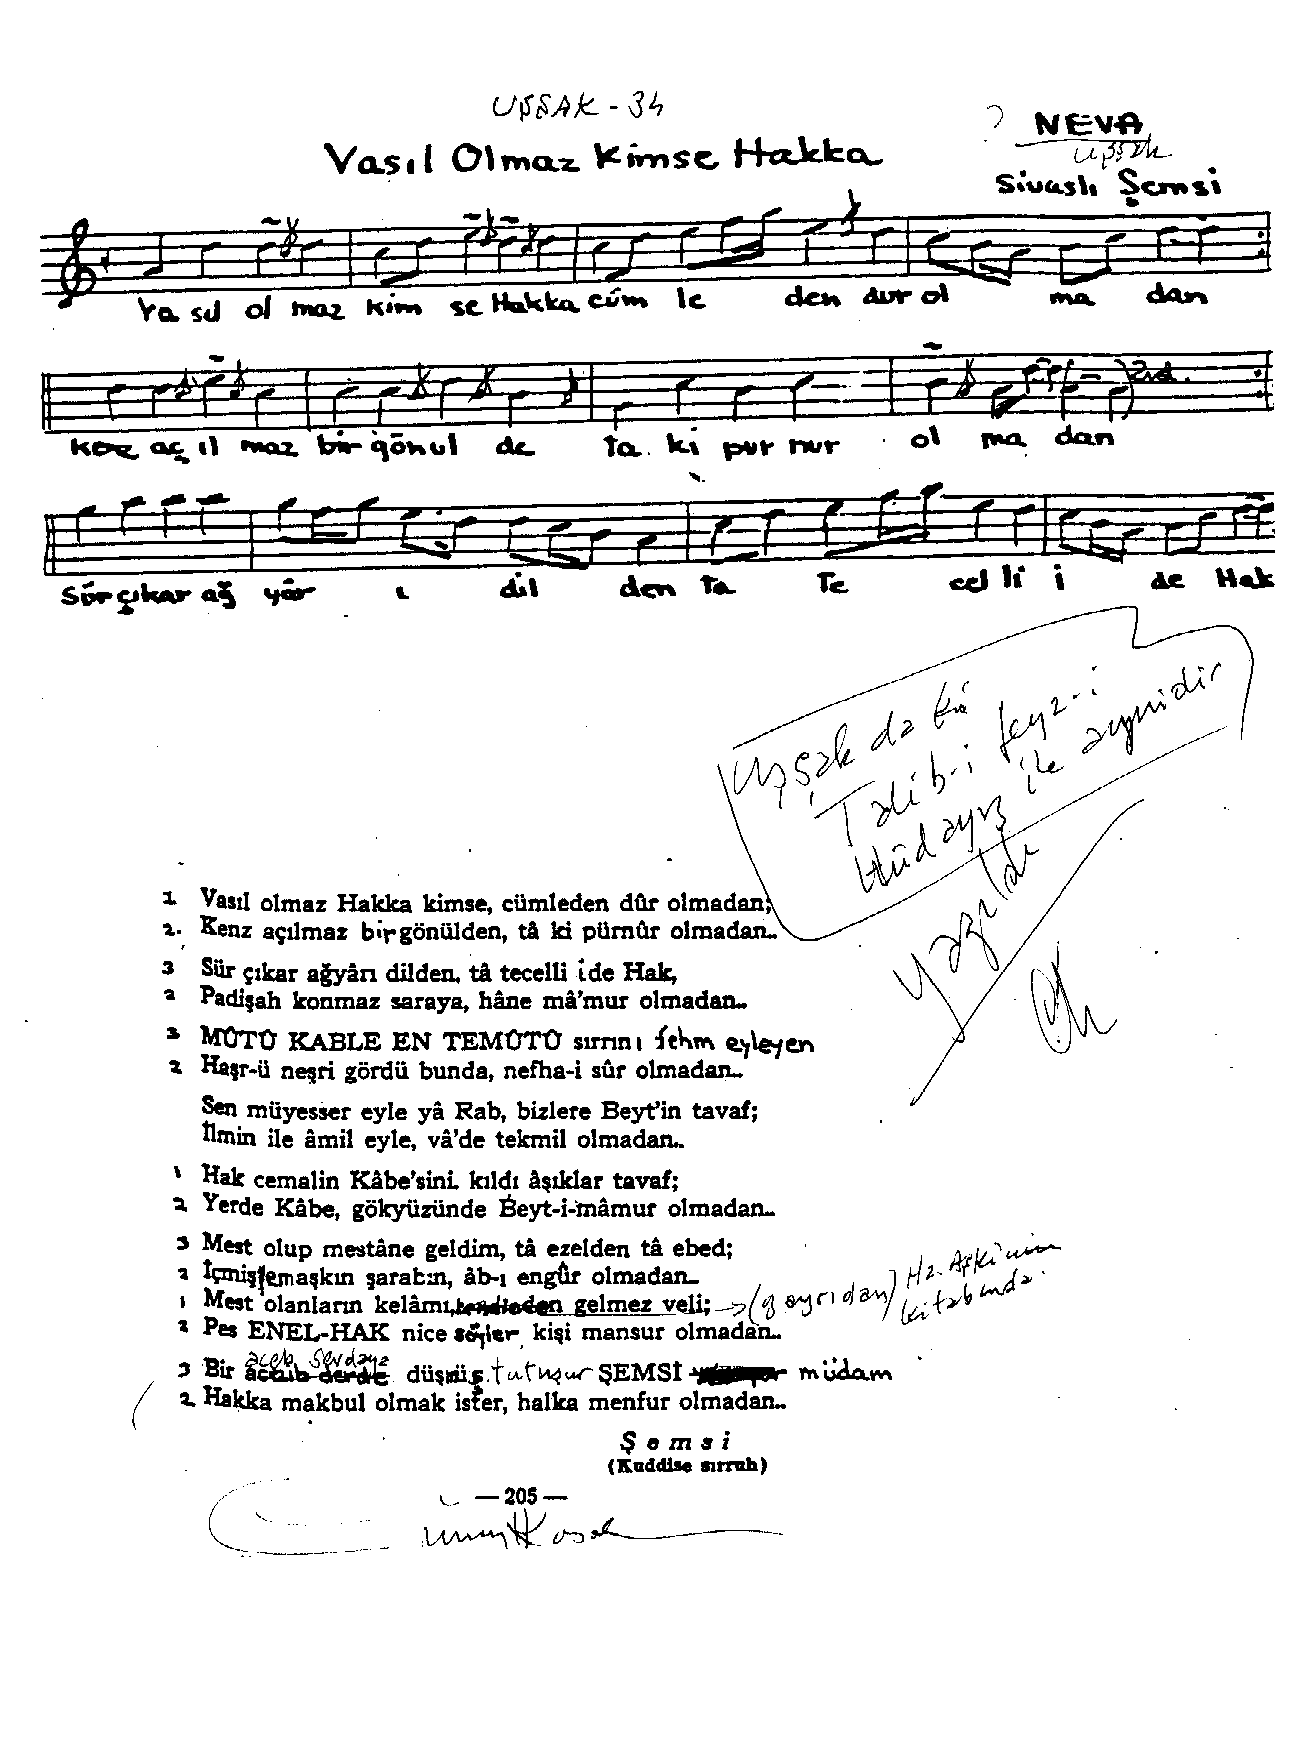 UŞŞAK - 34
? NEVA
Vasıl Olmaz Kimse Hakka
uşşak
Sivaslı Şemsi
Va sıl ol maz kim se Hakka cüm le den dur ol ma dan
Kenz açıl maz bir gönul de ta ki pur nur ol ma dan
Sür çıkar ağ yâr ı dil den ta te cel li i de Hak
Uşşak da ki
Talib-i feyz-i
Hüdayız ile aynidir
yazıldı
1 Vasıl olmaz Hakka kimse, cümleden dûr olmadan;
2. Kenz açılmaz bir gönülden, tâ ki pürnûr olmadan..
3 Sür çıkar ağyârı dilden, tâ tecelli ide Hak,
2 Padişah konmaz saraya, hâne mâ'mur olmadan..
3 MÛTÛ KABLE EN TEMÛTÛ sırrını fehm eyleyen
2 Haşr-ü neşri gördü bunda, nefha-i sûr olmadan..
Sen müyesser eyle yâ Rab, bizlere Beyt'in tavaf;
İlmin ile âmil eyle, vâ'de tekmil olmadan..
1 Hak cemalin Kâbe'sini kıldı âşıklar tavaf;
2 Yerde Kâbe, gökyüzünde Beyt-i-mâmur olmadan..
3 Mest olup mestâne geldim, tâ ezelden tâ ebed;
2 İçmişlemaşkın şarabın, âb-ı engûr olmadan..
1 Mest olanların kelâmı, kendinden gelmez veli; → (gayrıdan) Hz. Aşkî'nin
kitabında.
2 Pes ENEL-HAK nice söyler, kişi mansur olmadan..
aceb sevdaya
3 Bir düşmüş tutuşur ŞEMSİ müdam
2 Hakka makbul olmak ister, halka menfur olmadan..
Şemsi
(Kuddise sırruh)
— 205 —